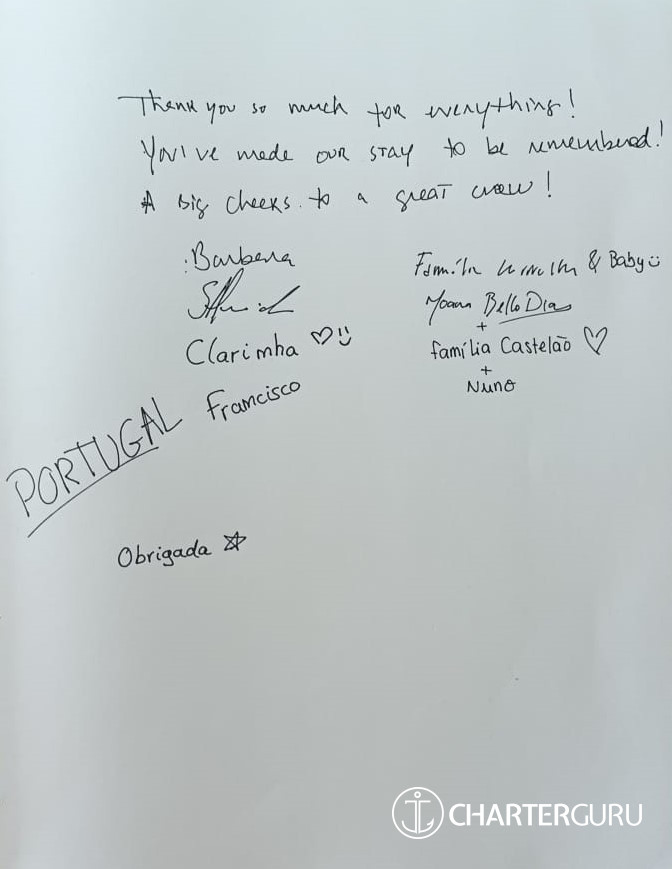 Thank you so much for everything!
You've made our stay to be remembered!
A big cheers to a great crew!
Barbara
Clarinha ♡ :)
Francisco
Família & Baby :)
Joana Bello Dias
+
família Castelão ♡
+
Nuno
PORTUGAL
Obrigada ☆
CHARTERGURU